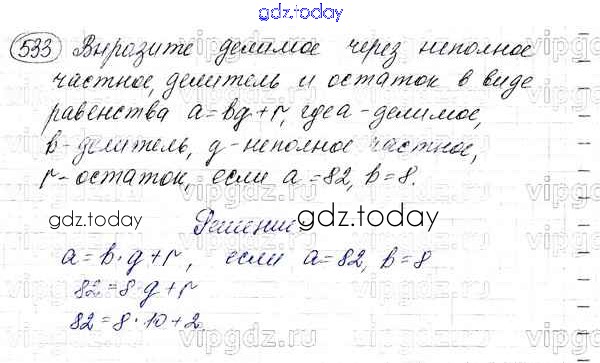 gdz.today
533 Выразите делимое через неполное
частное, делитель и остаток в виде
равенства a=bq+r, где a-делимое,
b-делитель, q-неполное частное,
r-остаток, если a=82, b=8.
gdz.today
Решение
gdz.today
a=b·q+r, если a=82, b=8
82=8·q+r
82=8·10+2
vipgdz.ru